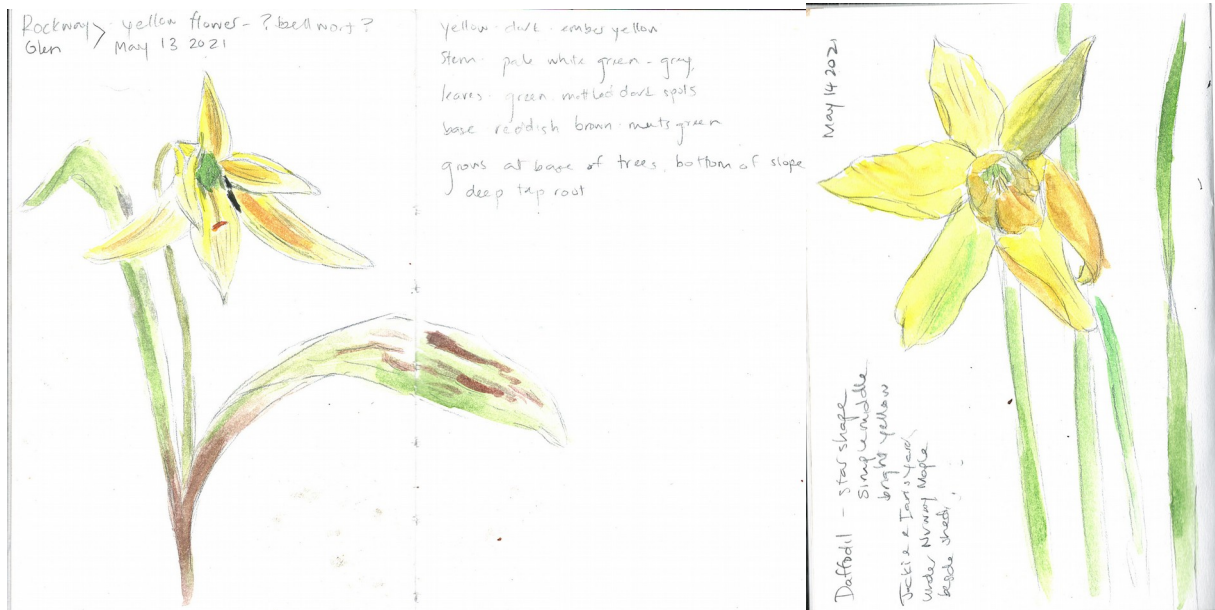 Rockway yellow flower - ? bellwort ?
Glen May 13 2021
yellow - dark - ember yellow
Stem - pale white green - gray
leaves - green mottled dark spots
base reddish brown - meets green
grows at base of trees, bottom of slope
deep tap root
May 14 2021
Daffodil - star shape
simple middle
bright yellow
Jackie & Ian's yard
under Norway Maple
beside shed